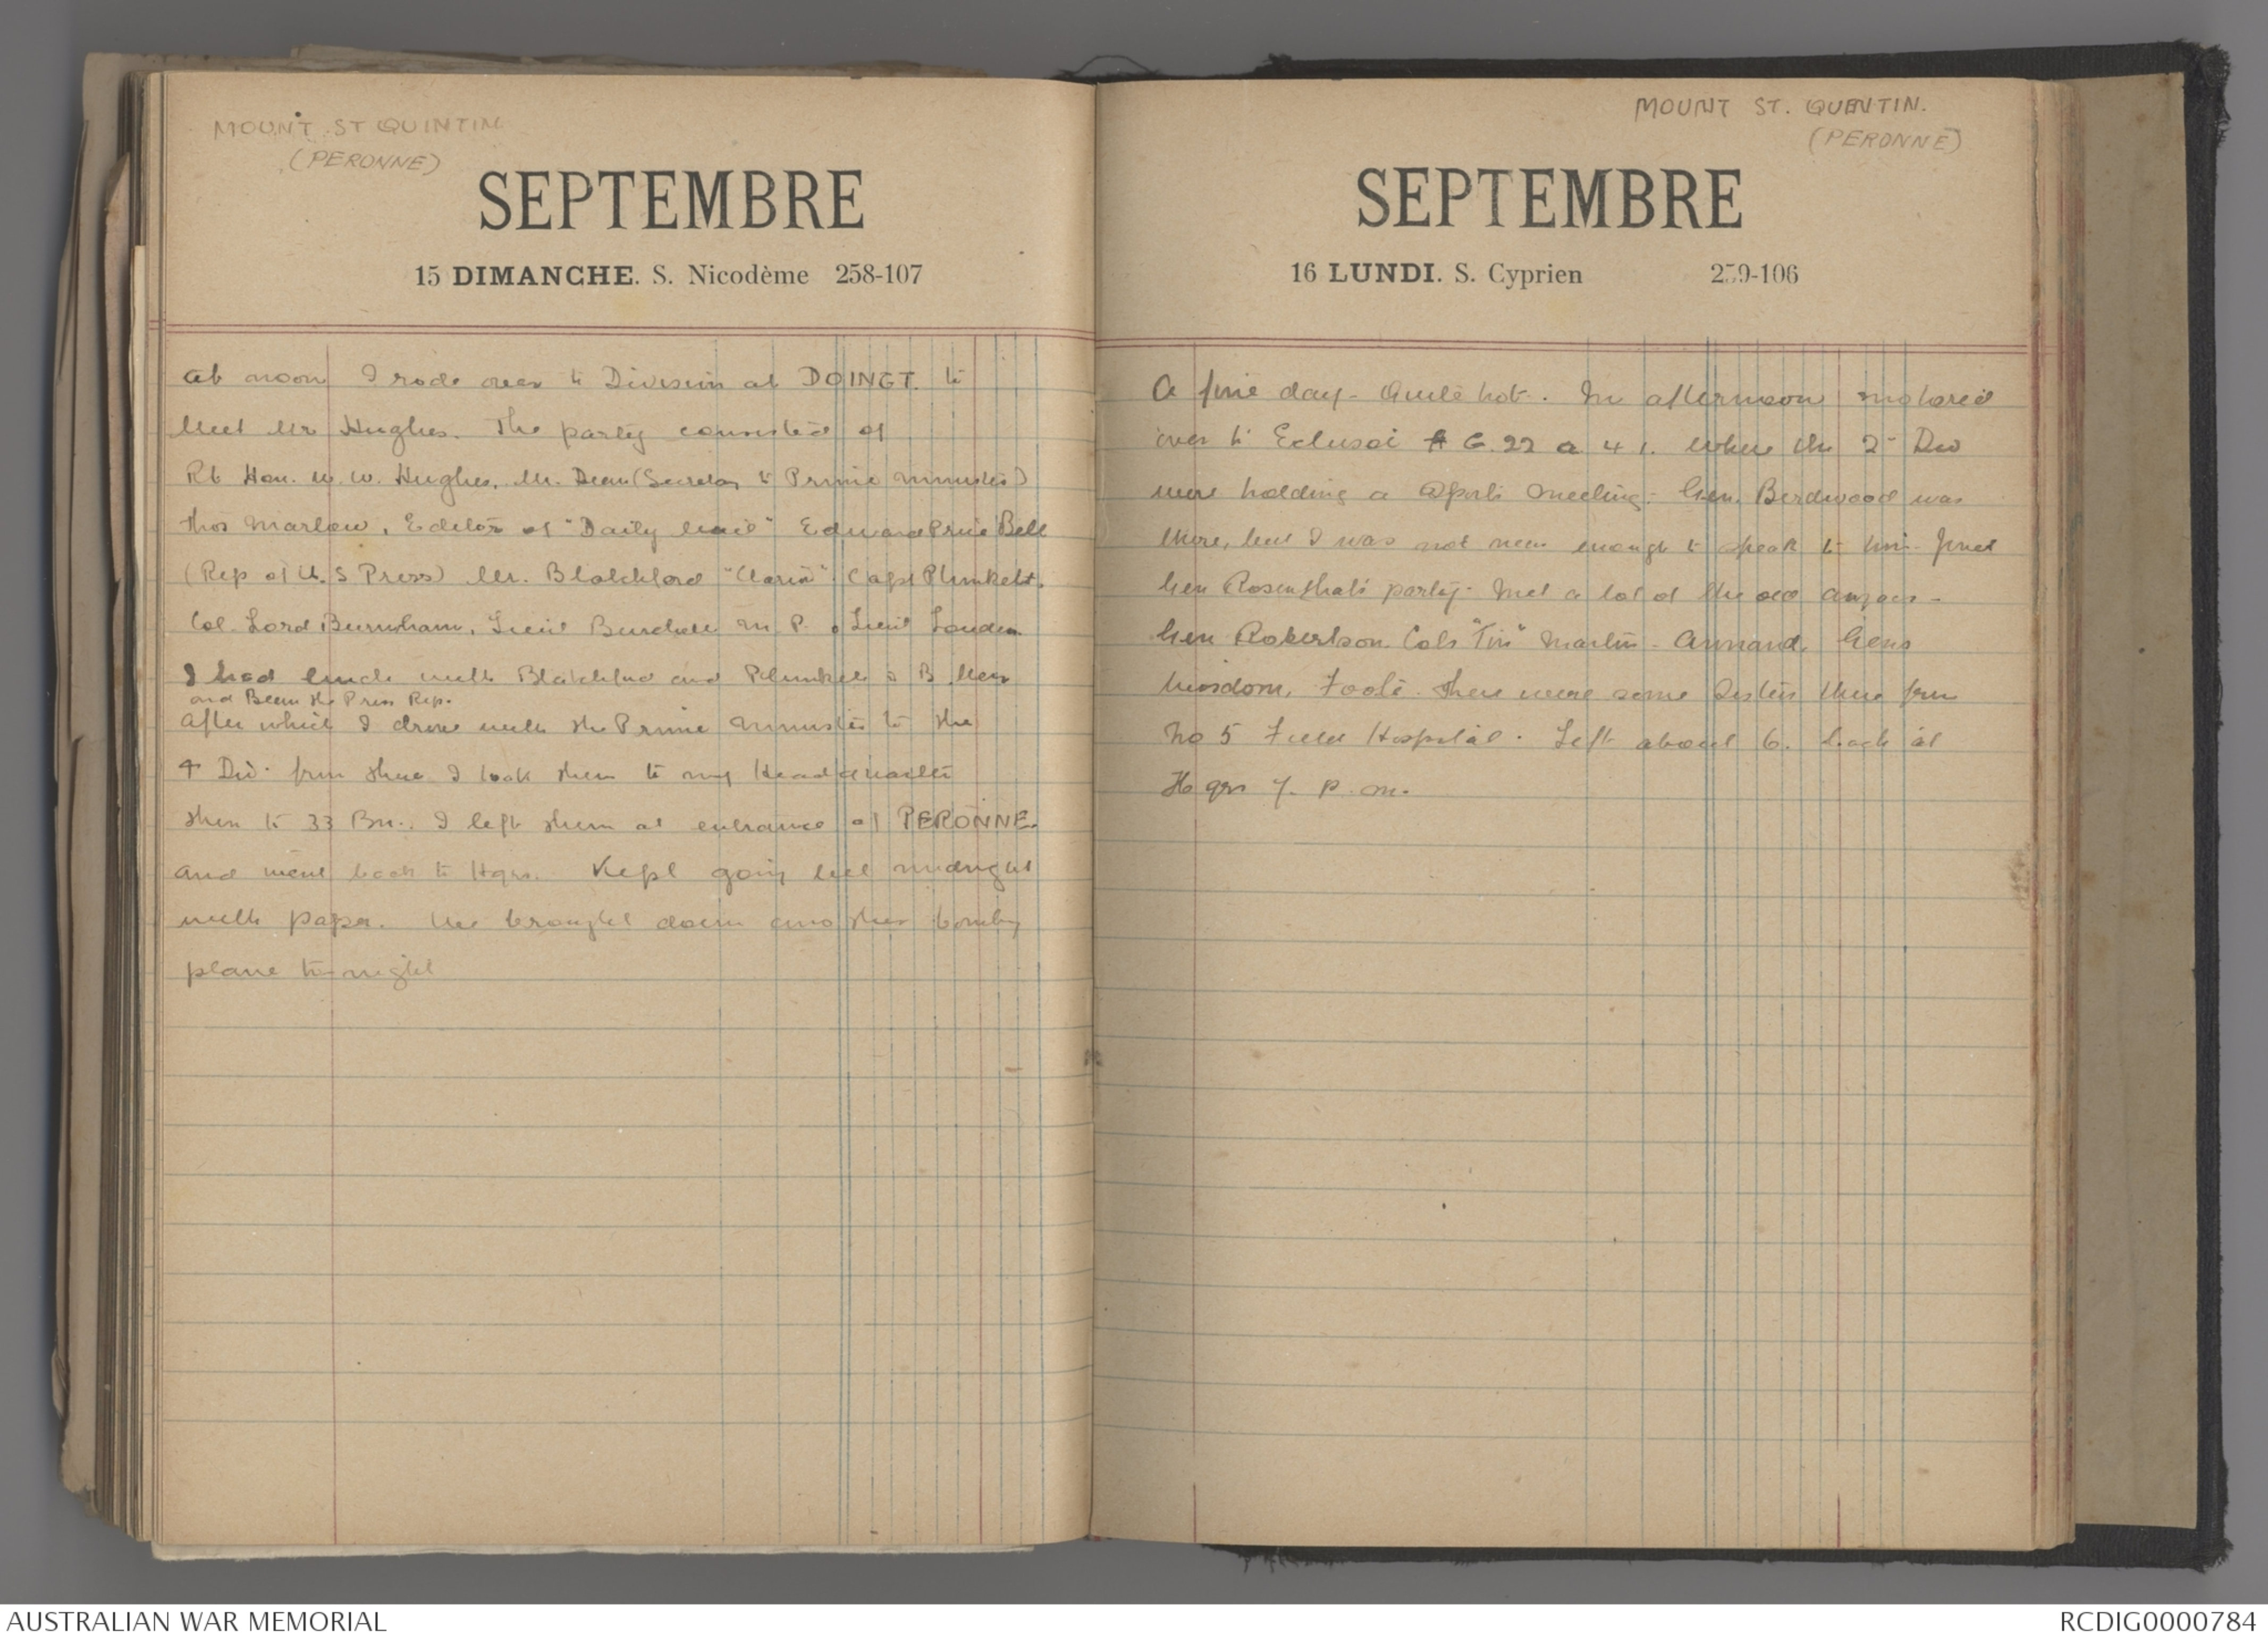 MOUNT ST QUINTIN
(PERONNE)
SEPTEMBRE
15 DIMANCHE. S. Nicodème 258-107
At noon I rode over to Division at DOINGT. to
Meet Mr Hughes. The party consisted of
Rt Hon. W. W. Hughes, Mr. Dean (Secretary to Prime Minister)
Thos Marlow, Editor of "Daily Mail" Edward Price Bell
(Rep of U.S Press) Mr. Blatchford "Clarion" Capt Plunkett.
Col. Lord Burnham, Lieut M.P. Lieut
I had lunch with Blatchford and Plunkett in B Mess
and Bean the Press Rep.
After which I drove with the Prime Minister to the
4 Div. from there I took them to my Headquarters
then to 33 Bn. I left them at entrance of PERONNE.
and went back to Hqrs. Kept going till midnight
with paper. We brought down another bombing
plane to-night
MOUNT ST. QUENTIN.
(PERONNE)
SEPTEMBRE
16 LUNDI. S. Cyprien 259-106
A fine day - Quite hot. In afternoon motored
over to Eclusei G.22 a 4 1. where the 2 Div
were holding a Sports Meeting. Gen. Birdwood was
there, but I was not near enough to speak to him. Joined
Gen Rosenthal's party. Met a lot of the old Anzacs -
Gen Robertson. Cols "Tin" Martin - Annand. Gens
Wisdom, Foote. There were some Sisters there from
No 5 Field Hospital. Left about 6. back at
Hqrs 7. p.m.
AUSTRALIAN WAR MEMORIAL
RCDIG0000784